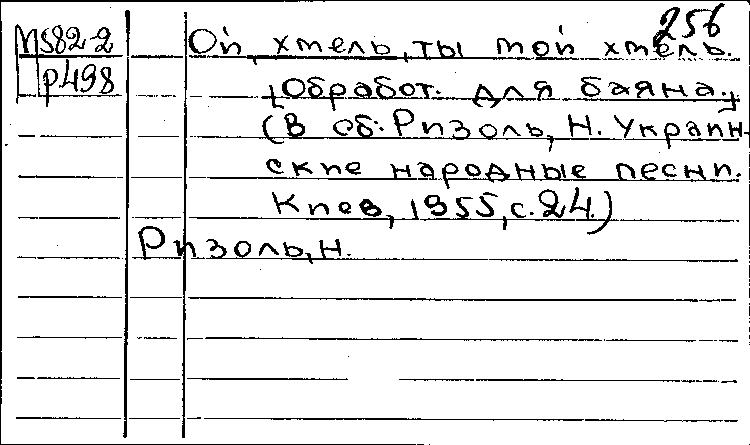 256
М582-2
р498
Ой, хмель, ты мой хмель.
[Обработ. для баяна.]
(В сб: Ризоль, Н. Украин-
ские народные песни.
Киев, 1955, с. 24.)
Ризоль, Н.